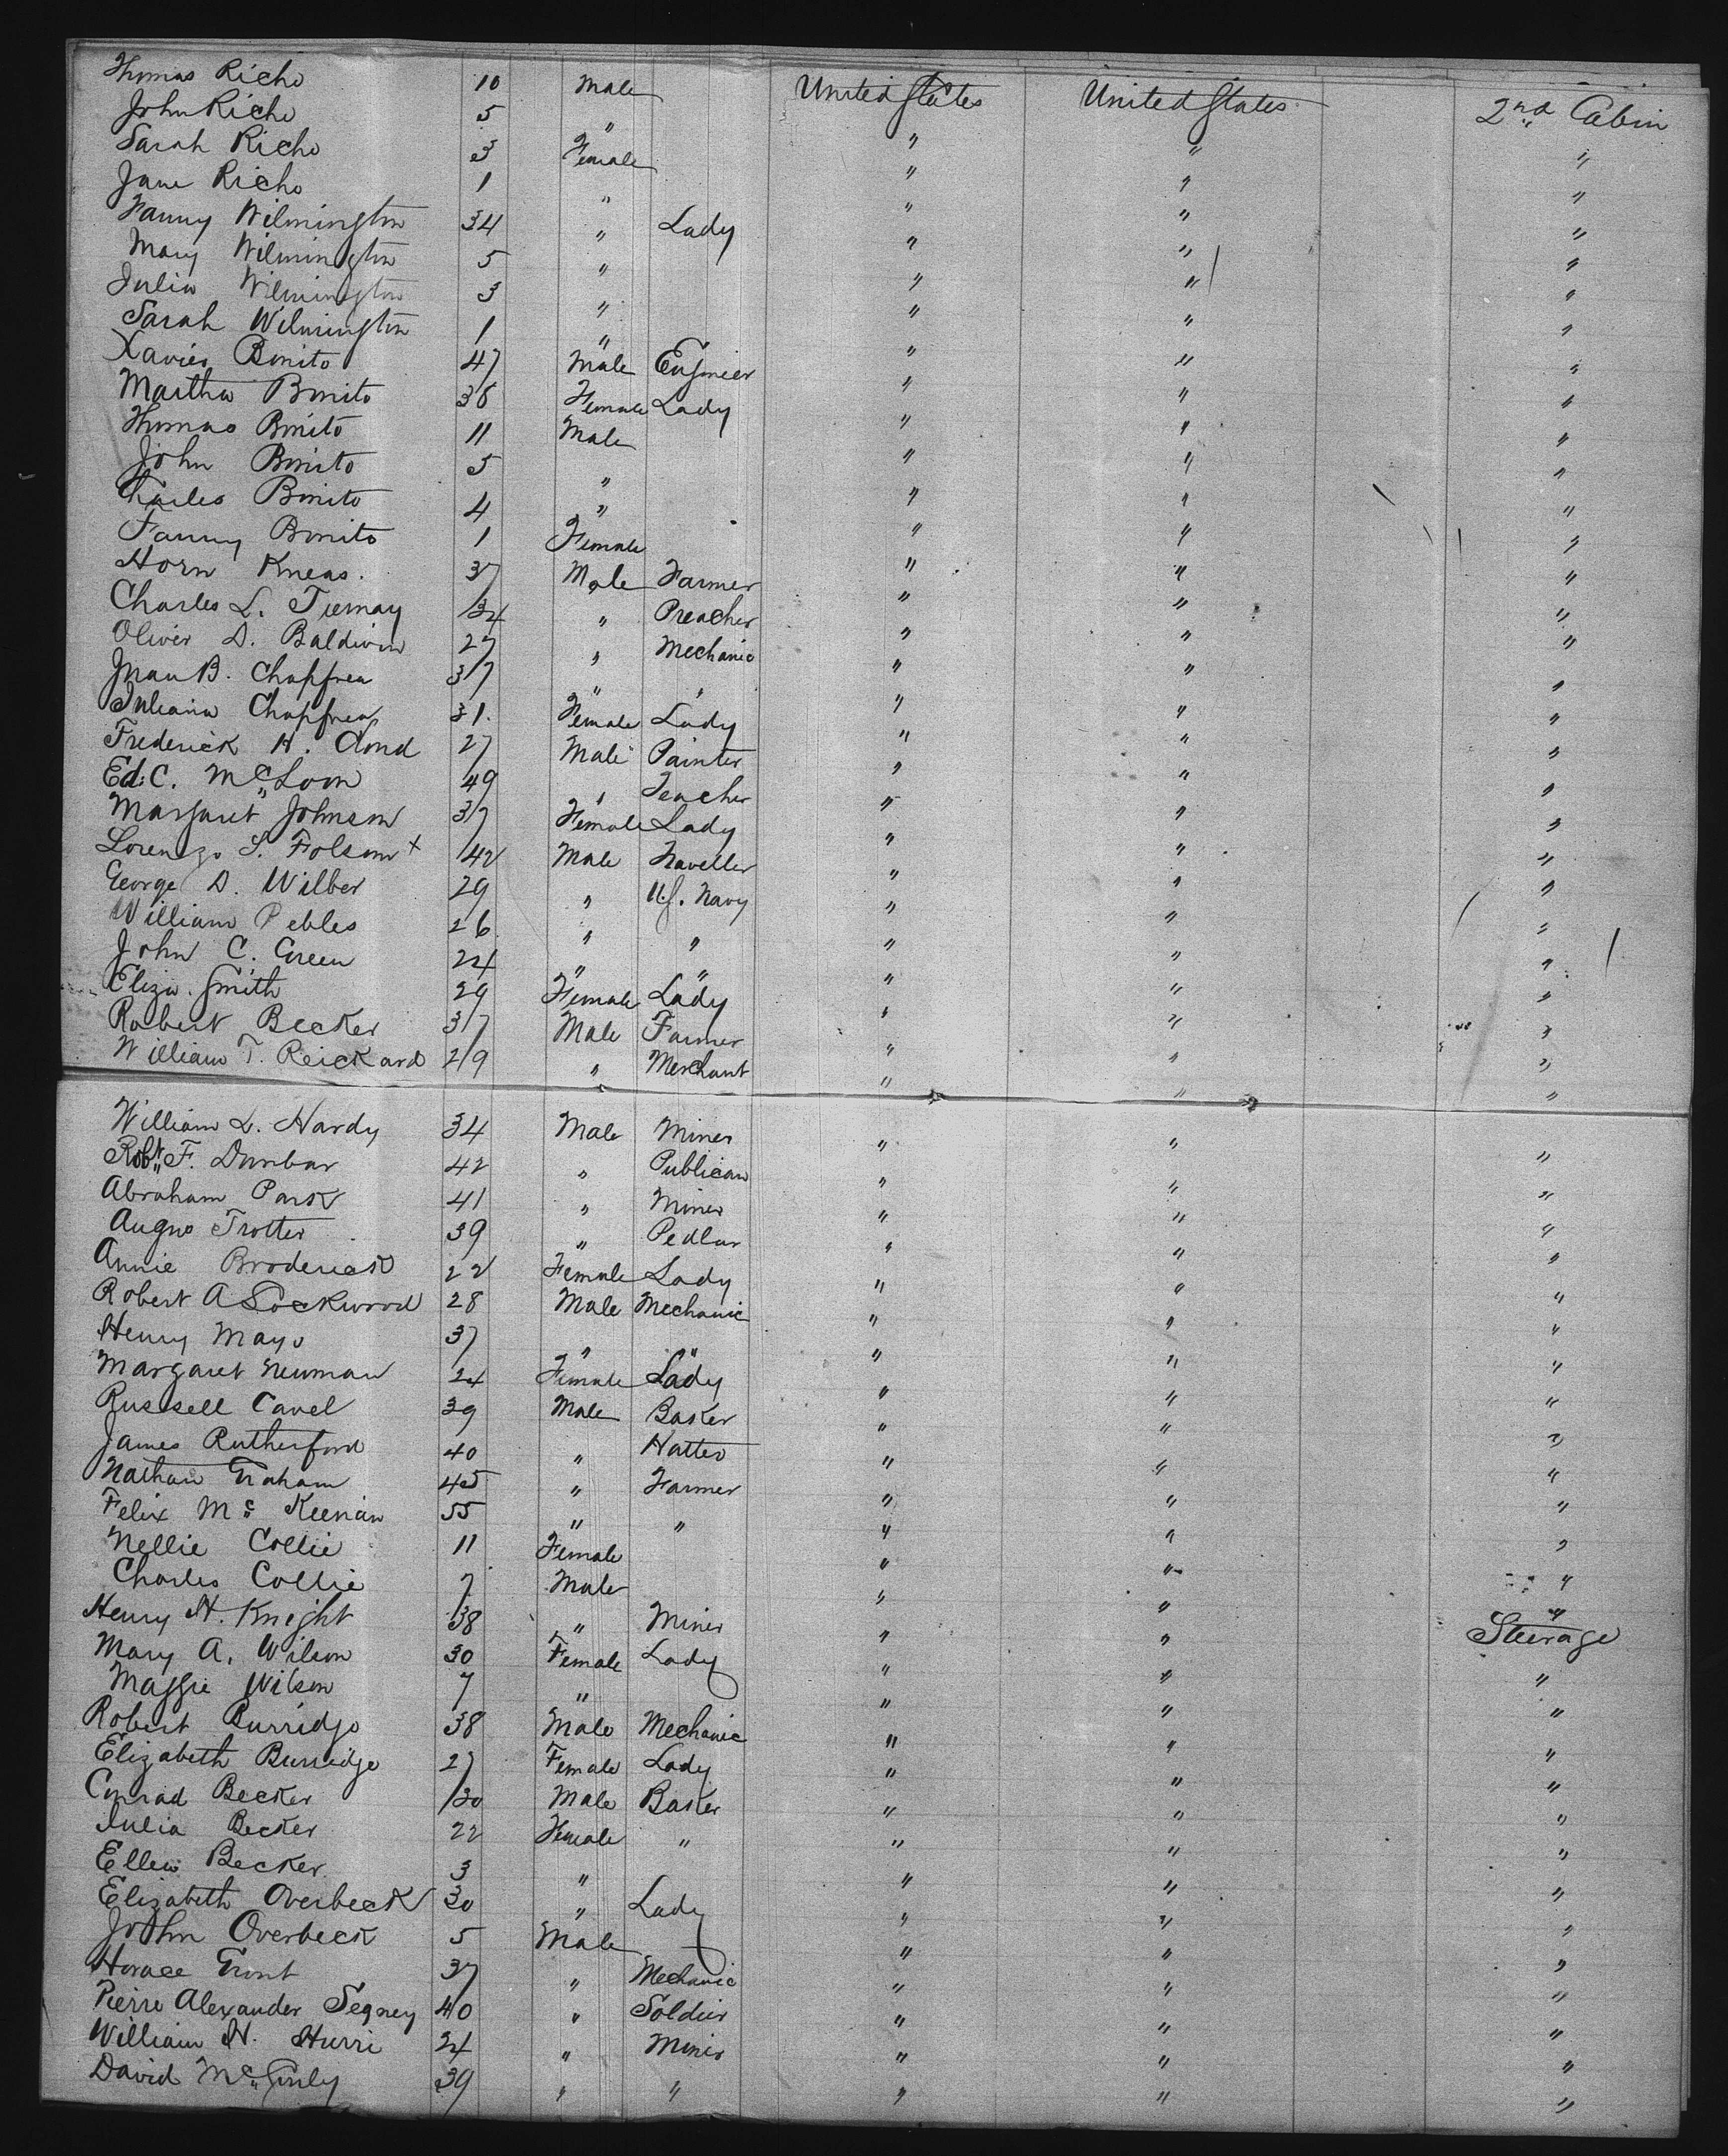 Thomas Richo 10 Male United States United States 2nd Cabin
John Richo 5 " " " "
Sarah Richo 3 Female " " "
Jane Richo 1 " " " "
Fanny Wilmington 34 " Lady " " "
Mary Wilmington 5 " " " "
Julia Wilmington 3 " " " "
Sarah Wilmington 1 " " " "
Xavier Bonito 47 Male Engineer " " "
Martha Bonito 38 Female Lady " " "
Thomas Bonito 11 Male " " "
John Bonito 5 " " " "
Charles Bonito 4 " " " "
Fanny Bonito 1 Female " " "
Horn Kneas. 37 Male Farmer " " "
Charles L. 34 " Preacher " " "
Oliver D. Baldwin 27 " Mechanic " " "
Juan B. 37 " " " " "
Juliana 31. Female Lady " " "
Frederick H. 27 Male Painter " " "
Ed: C. McLoon 49 " Teacher " " "
Margaret Johnson 37 Female Lady " " "
Lorenzo S. Folsom x 42 Male Traveller " " "
George D. Wilber 29 " U.S. Navy " " "
William Pebles 26 " " " " "
John C. Green 24 " " " " "
Eliza Smith 29 Female Lady " " "
Robert Becker 37 Male Farmer " " "
William T. Reickard 29 " Merchant " " "
William L. Hardy 34 Male Miner " " "
Robt. F. Dunbar 42 " Publican " " "
Abraham Park 41 " Miner " " "
Angus Trotter 39 " Pedlar " " "
Annie Broderick 22 Female Lady " " "
Robert A Lockwood 28 Male Mechanic " " "
Henry Mayo 37 " " " " "
Margaret Newman 24 Female Lady " " "
Russell Cavel 39 Male Baker " " "
James Rutherford 40 " Hatter " " "
Nathan Graham 45 " Farmer " " "
Felix Mc Keenan 55 " " " " "
Nellie Collie 11 Female " " "
Charles Collie 7 Male " " "
Henry H. Knight 38 " Miner " " Steerage
Mary A. Wilson 30 Female Lady " " "
Maggie Wilson 7 " " " "
Robert Burridge 38 Male Mechanic " " "
Elizabeth Burridge 27 Female Lady " " "
Conrad Becker 30 Male Baker " " "
Julia Becker 22 Female " " " "
Ellen Becker 3 " " " "
Elizabeth Overbeck 30 " Lady " " "
John Overbeck 5 Male " " "
Horace Grant 37 " Mechanic " " "
Pierre Alexander Segney 40 " Soldier " " "
William H. Hurri 24 " Miner " " "
David McGinly 39 " " " " "